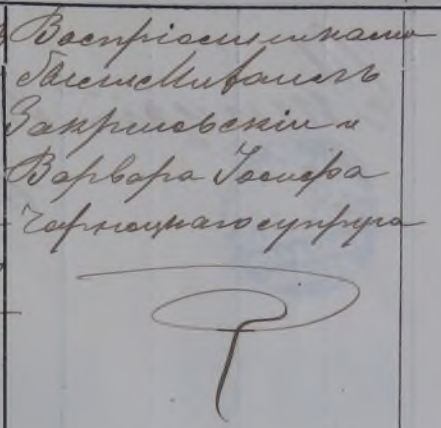 Воспріемниками
были Михаилъ
Закршевскій и
Варвара Іосифа
Чарноцкаго супруга